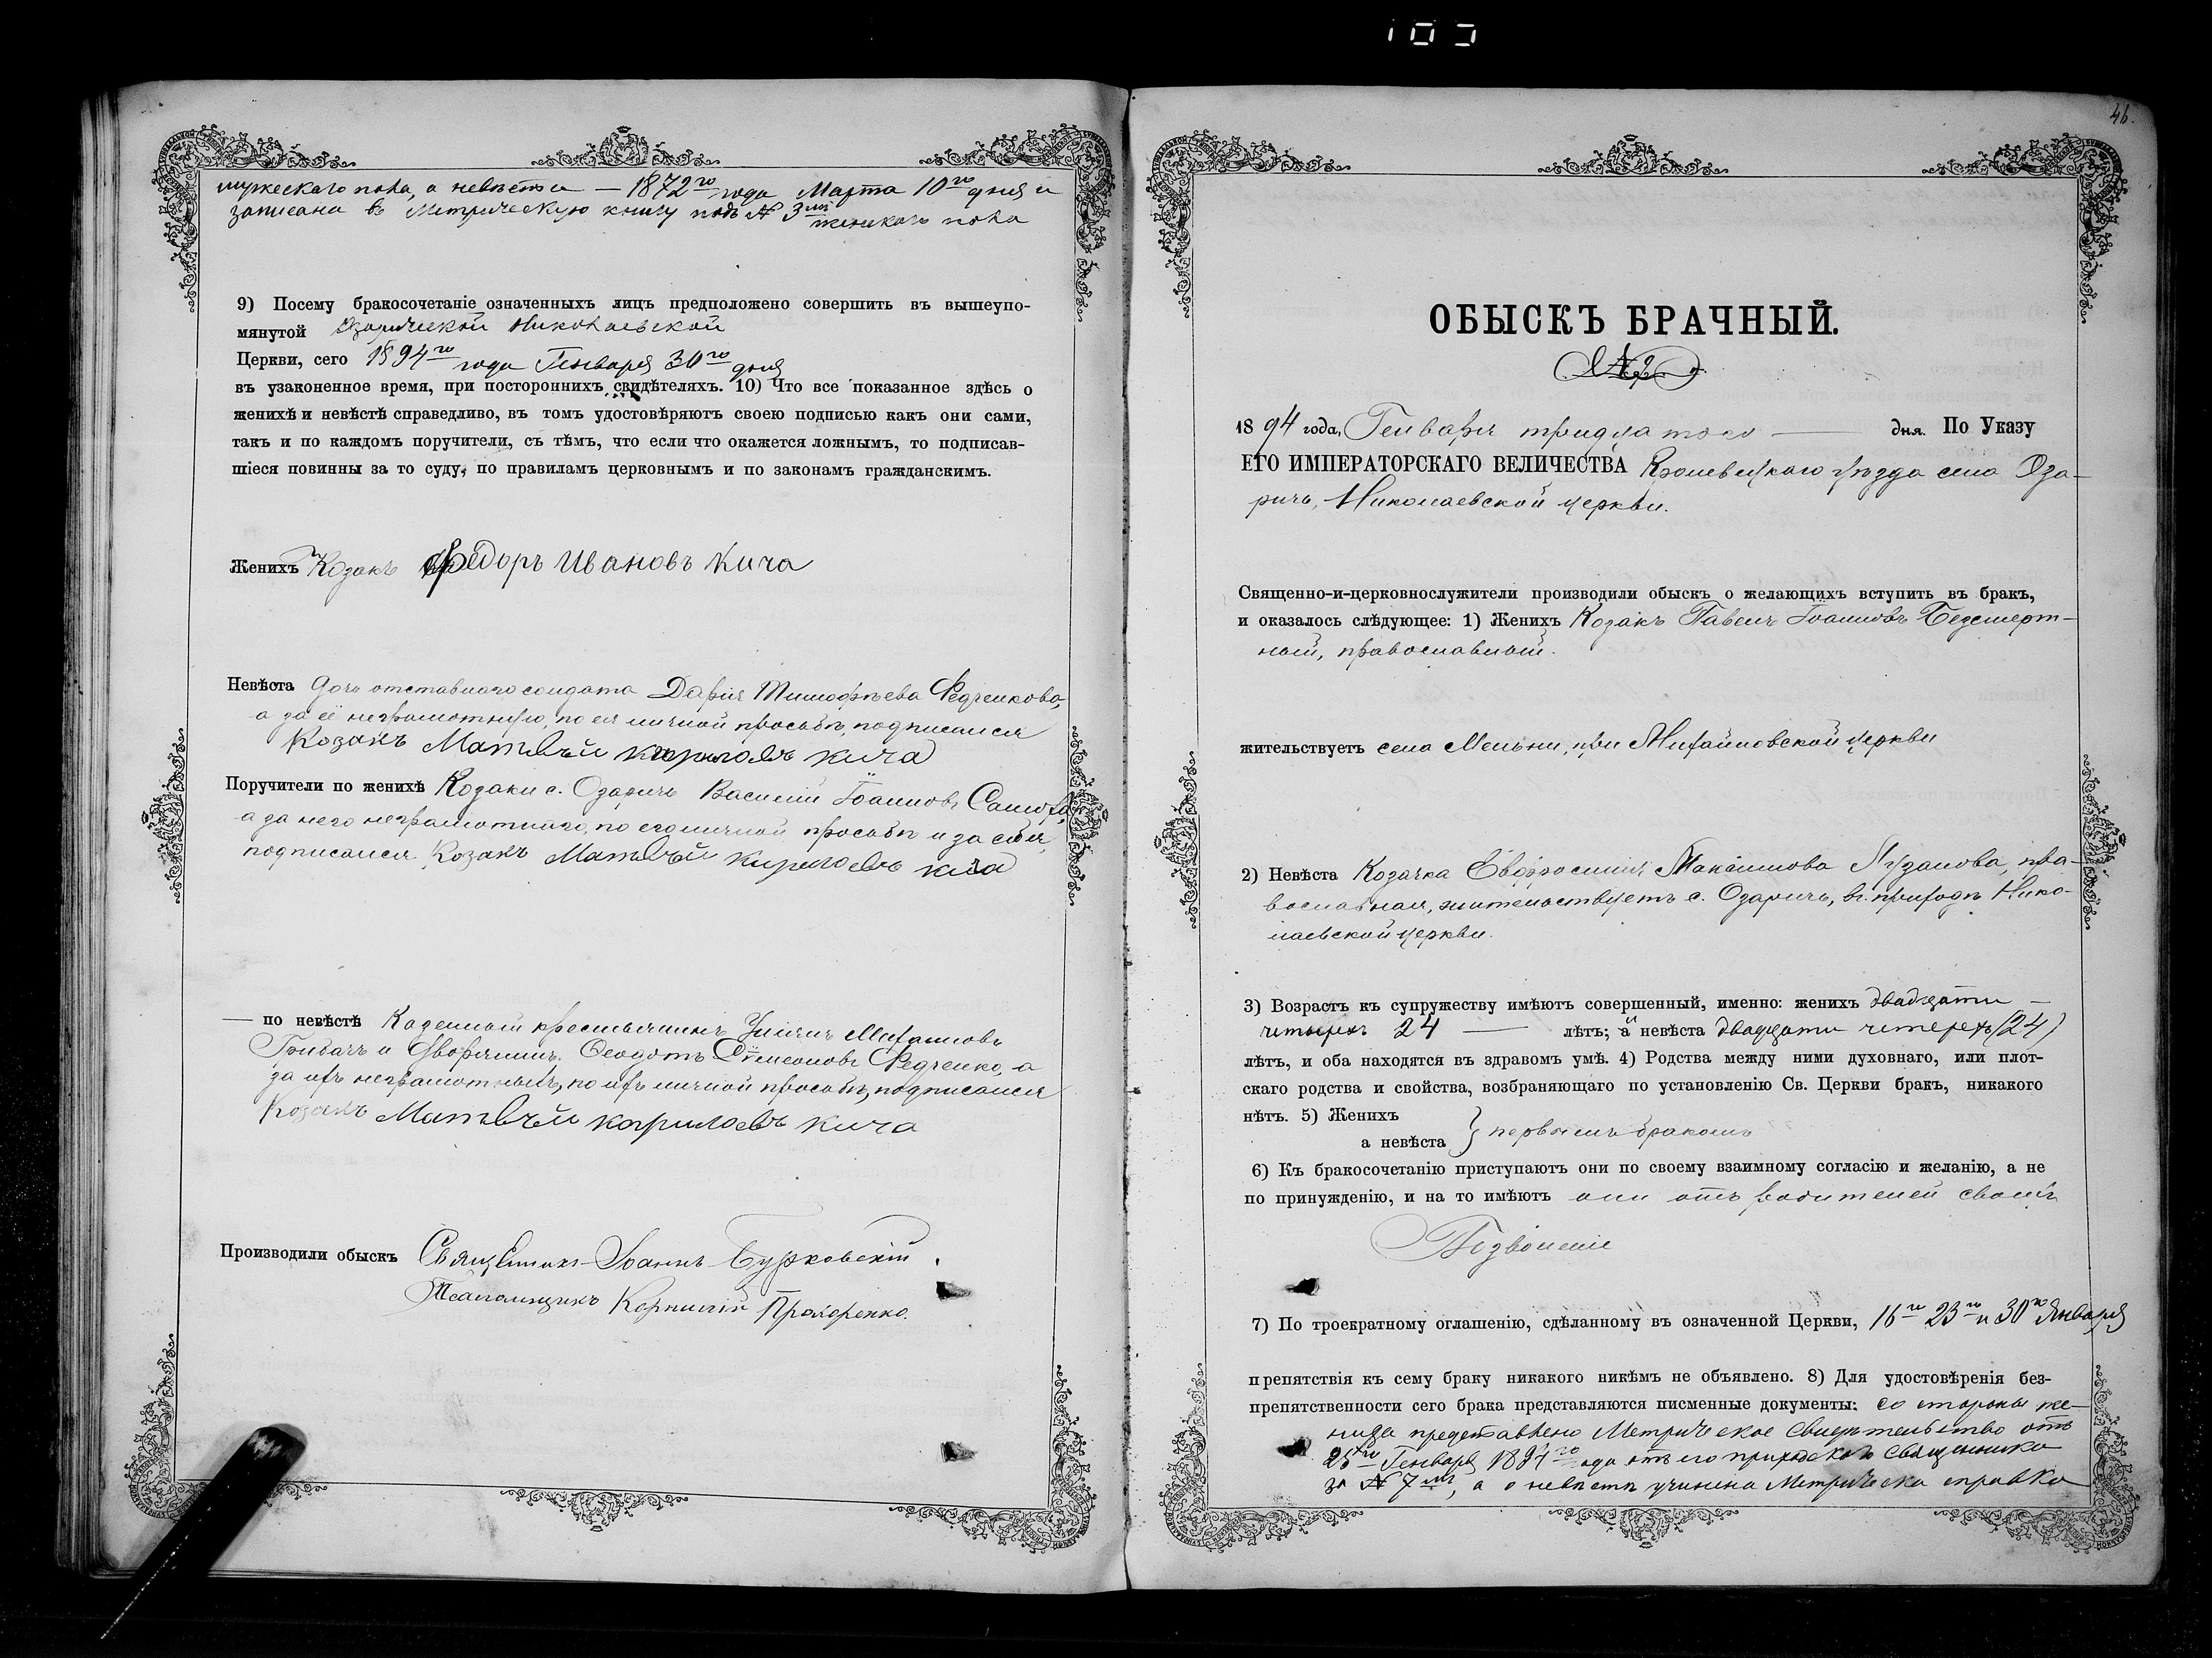 мужескаго пола, а невѣста — 1872го года Марта 10го дня и
записана въ Метрическую книгу подъ № 3мъ
женскаго пола
9) Посему бракосочетаніе означенныхъ лицъ предположено совершить въ вышеупо-
мянутой Озарической Николаевской
Церкви, сего 1894го года Генваря 30го дня
въ узаконенное время, при постороннихъ свидѣтеляхъ. 10) Что все показанное здѣсь о
женихѣ и невѣстѣ справедливо, въ томъ удостовѣряютъ своею подписью какъ они сами,
такъ и по каждомъ поручители, съ тѣмъ, что если что окажется ложнымъ, то подписав-
шіеся повинны за то суду, по правиламъ церковнымъ и по законамъ гражданскимъ.
Женихъ Козакъ Федоръ Ивановъ Кича
Невѣста дочь отставнаго солдата Дарія Тимофѣева Федченкова,
а за её неграмотную, по ея личной просьбѣ, подписался
Козакъ Матвѣй Кирилоевъ Кича
Поручители по женихѣ Козаки с. Озаричъ Василій Іоанновъ
а за него неграмотнаго, по его личной просьбѣ и за себя,
подписался Козакъ Матвѣй Кирилоевъ Кича
— по невѣстѣ Казенный крестьянинъ Михаиловъ
Грибачъ и Дворянинъ Ѳеодотъ Сѵмеоновъ Федченко, а
за ихъ неграмотныхъ, по ихъ личной просьбѣ, подписался
Козакъ Матвѣй Кирилоевъ Кича
Производили обыскъ Священникъ Іоаннъ Бужковскій.
Псаломщикъ Корнилій Прохоренко.
46.
ОБЫСКЪ БРАЧНЫЙ.
№ 2
1894 года, Генваря тридцатаго — дня. По Указу
ЕГО ИМПЕРАТОРСКАГО ВЕЛИЧЕСТВА Кролевецкаго уѣзда села Оза-
ричъ, Николаевской церкви.
Священно-и-церковнослужители производили обыскъ о желающихъ вступить въ бракъ,
и оказалось слѣдующее: 1) Женихъ Козакъ Павелъ Іоанновъ Безсмерт-
ный, православный.
жительствуетъ села Мельни, при Михайловской церкви
2) Невѣста Козачка Евфросинія Максимова Пузанова, пра-
вославная, жительствуетъ с. Озаричъ, въ приходѣ Нико-
лаевской церкви.
3) Возрастъ къ супружеству имѣютъ совершенный, именно: женихъ двадцати —
четырехъ 24 — лѣтъ; а невѣста двадцати четерехъ (24)
лѣтъ, и оба находятся въ здравомъ умѣ. 4) Родства между ними духовнаго, или плот-
скаго родства и свойства, возбраняющаго по установленію Св. Церкви бракъ, никакого
нѣтъ. 5) Женихъ
а невѣста } первымъ бракомъ
6) Къ бракосочетанію приступаютъ они по своему взаимному согласію и желанію, а не
по принужденію, и на то имѣютъ они отъ родителей своихъ
Позволеніе
7) По троекратному оглашенію, сдѣланному въ означенной Церкви, 16го 23го и 30го Января
препятствія къ сему браку никакого никѣмъ не объявлено. 8) Для удостовѣренія без-
препятственности сего брака представляются писменные документы: со стороны же-
ниха представлено Метрическое Свидѣтельство отъ
25го Генваря 1894го года отъ его приходскаго Священника
за № 7мъ, а о невѣстѣ учинена Метрическа справка